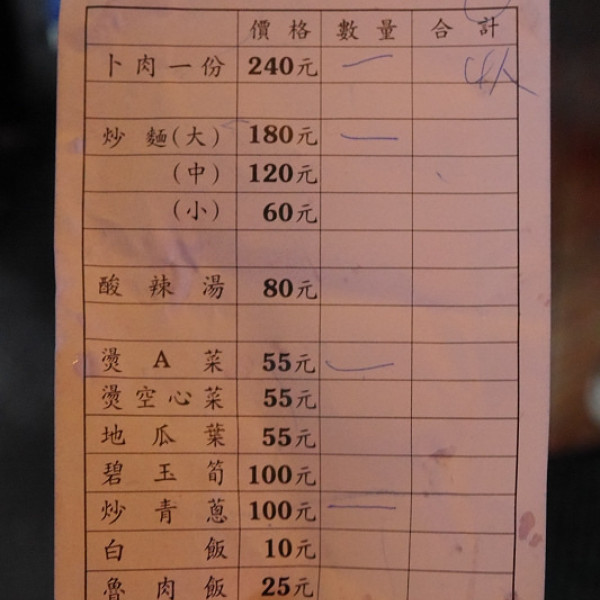 價格 數量 合計
卜肉一份 240元 一 4人
炒麵(大) 180元 一
(中) 120元
(小) 60元
酸辣湯 80元
燙A菜 55元 一
燙空心菜 55元
地瓜葉 55元
碧玉筍 100元
炒青蔥 100元 一
白飯 10元
魯肉飯 25元